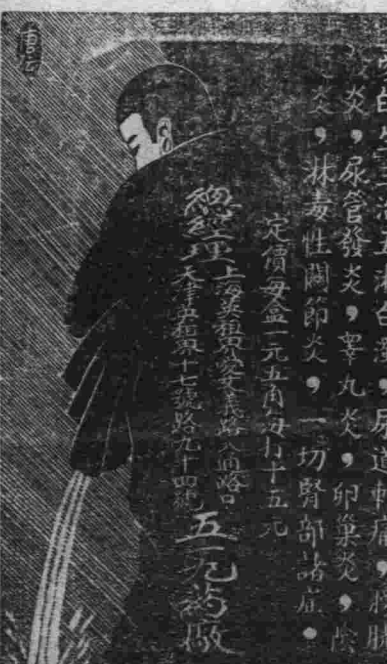 尿道刺痛,膀胱
炎,尿管發炎,睪丸炎,卵巢炎,陰
炎,淋毒性關節炎,一切腎部諸症。
定價每盒一元五角每打十五元
總經理
上海英租界愛文義路大通路口
天津英租界十七號路九十四號
五元药廠